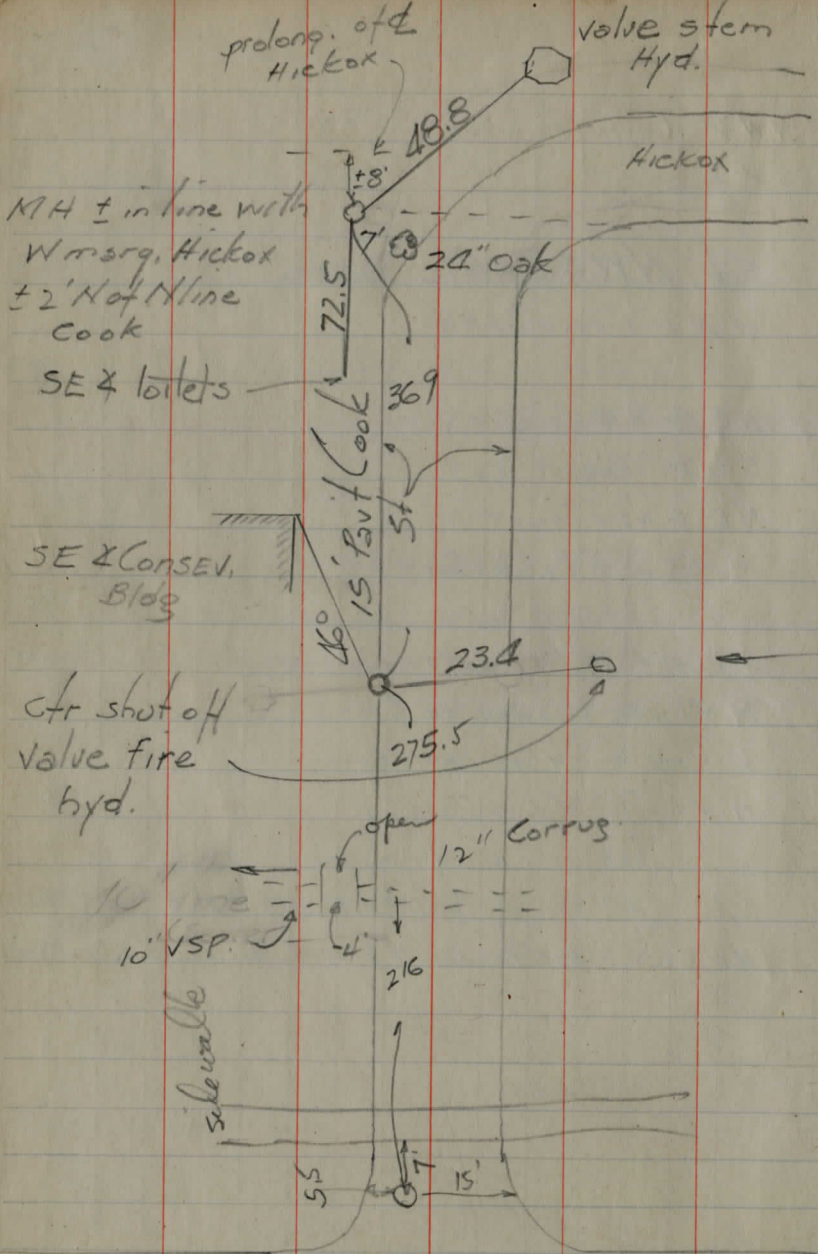 prolong. of ℄
Hickox
value stem
Hyd.
48.8
Hickox
±8'
MH ± in line with
W marg. Hickox
±2' N of N line
Cook
7'
24" Oak
72.5
SE ∡ toilets
369
15' Pav't Cook
St
SE ∡ Consev.
Bldg
46°
23.4
Ctr shut off
Valve fire
hyd.
275.5
open
12" Corrug.
10" VSP.
4'
216
sidewalk
55
7'
15'